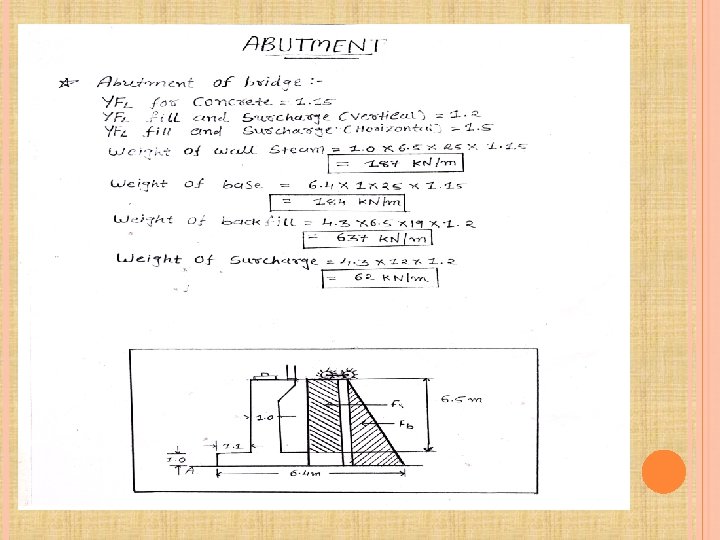 ABUTMENT
* Abutment of bridge :-
γFL for Concrete = 1.15
γFL fill and Surcharge (Vertical) = 1.2
γFL fill and Surcharge (Horizontal) = 1.5
Weight of wall Steam = 1.0 × 6.5 × 25 × 1.15
= 187 KN/m
Weight of base = 6.4 × 1 × 25 × 1.15
= 184 KN/m
Weight of backfill = 4.3 × 6.5 × 19 × 1.2
= 637 KN/m
Weight of Surcharge = 4.3 × 12 × 1.2
= 62 KN/m
6.5m
Fs
1.0
Fb
1.1
1.0
A
6.4m